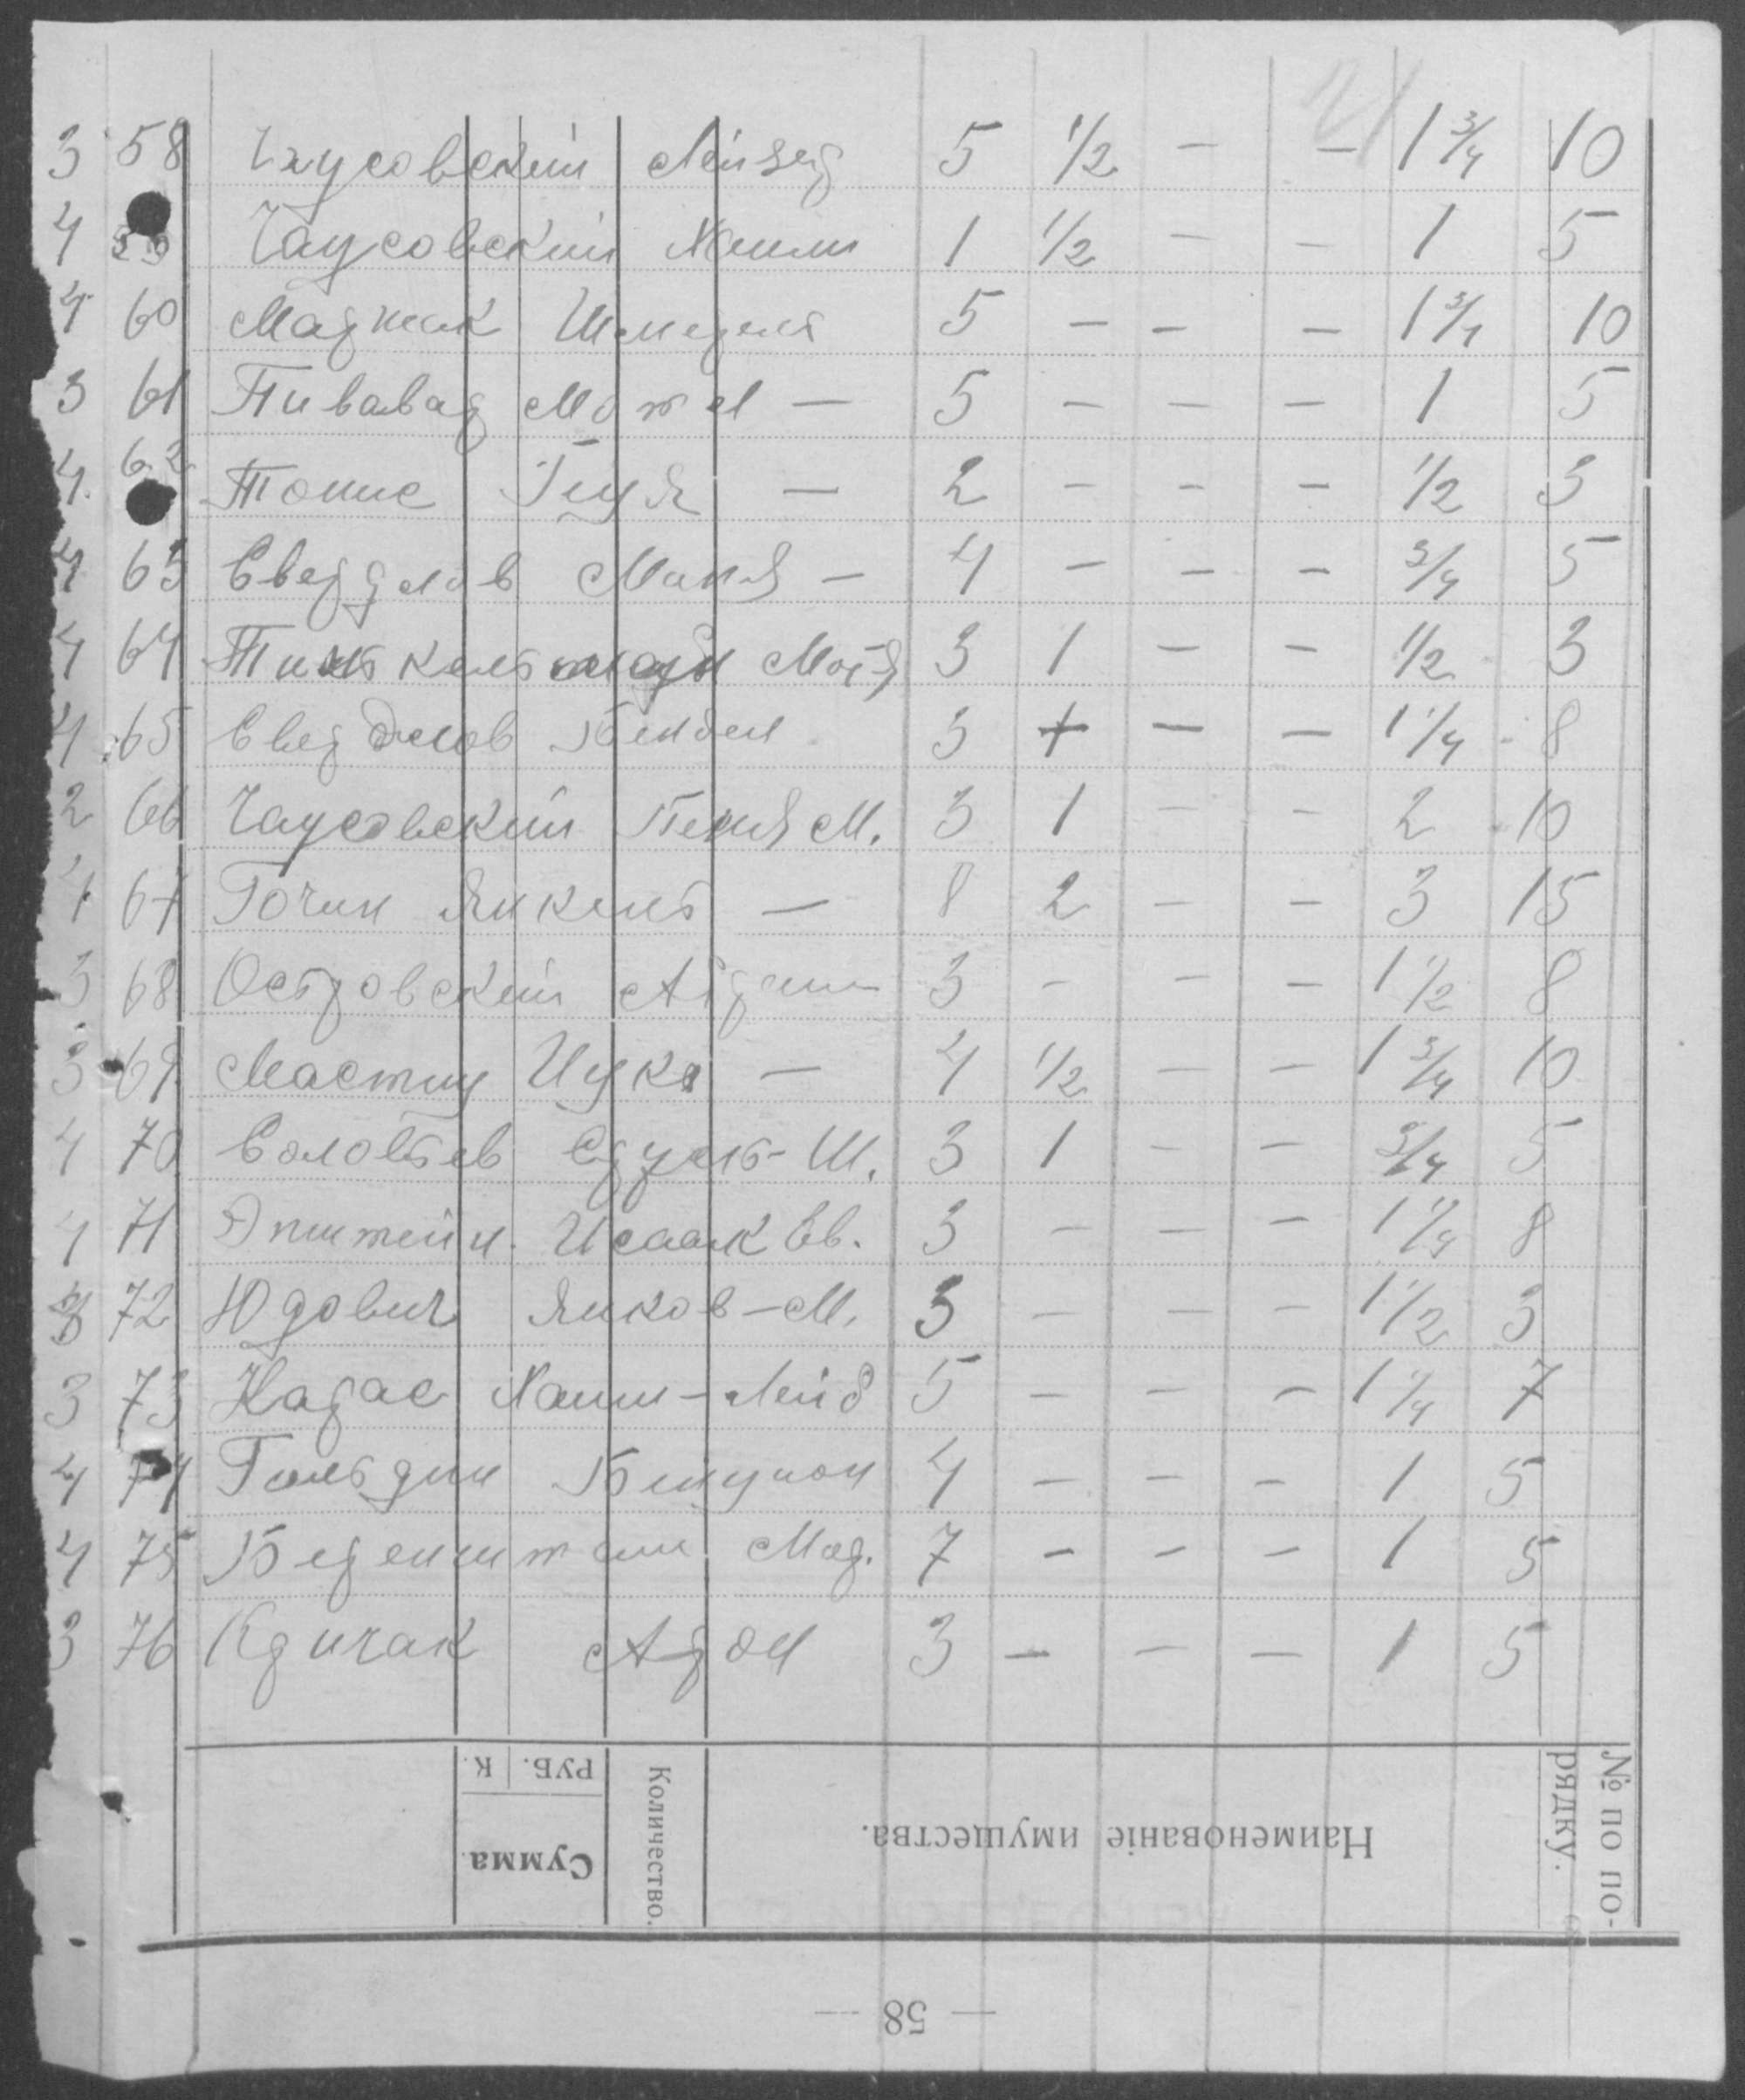 21
3 58 Чаусовский Лейзер 5 1/2 — — 1 3/4 10
4 59 Чаусовский 1 1/2 — — 1 5
4 60 5 — — — 1 3/4 10
3 61 Пивавар Мотл — 5 — — — 1 5
4. 62 — 2 — — — 1/2 3
4 63 Свердлов Маня — 4 — — — 3/4 5
4 64 3 1 — — 1/2 3
4 65 Свердлов 3 + — — 1 1/4 8
2 66 Чаусовский Геня М. 3 1 — — 2 10
4 67 Янкель — 8 2 — — 3 15
3 68 Островский 3 — — — 1 1/2 8
3 69 — 4 1/2 — — 1 3/4 10
4 70 Соловьев Сруель-Ш. 3 1 — — 3/4 5
4 71 Эпштейн. Исаак Ев. 3 — — — 1 1/4 8
3 72 Юдович Янков-М. 3 — — — 1 1/2 3
3 73 Карас Хаим-Лейб 5 — — — 1 1/4 7
4 74 Бенцион 4 — — — 1 5
4 75 Беренштам Мор. 7 — — — 1 5
3 76 Кричак Арон 3 — — — 1 5
№ по порядку.
Наименованіе имущества.
Количество.
Сумма.
РУБ. К.
— 58 —